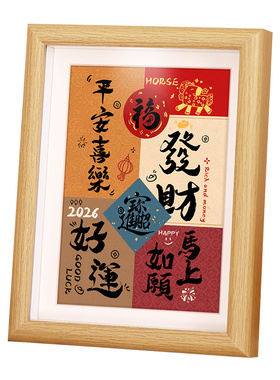 HORSE
平安喜樂
福
發財
Rich and money
2026
好運
GOOD LUCK
招財進寶
HAPPY
馬上
如願